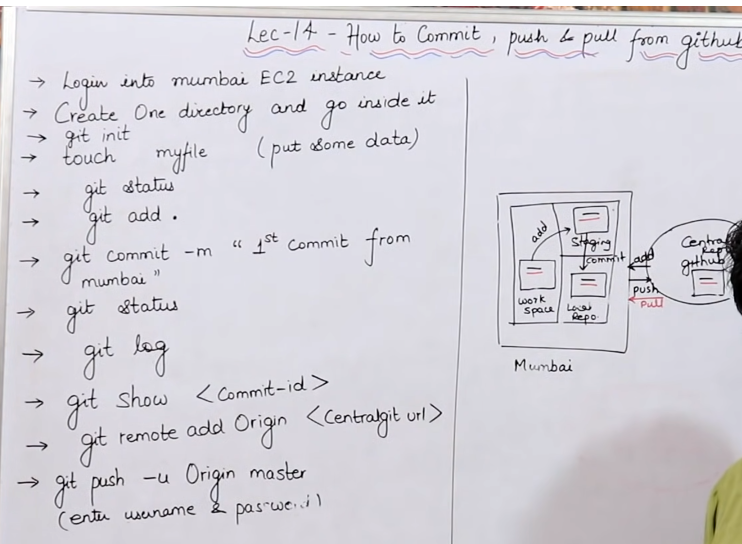 Lec-14 - How to Commit, push & pull from github
→ Login into mumbai EC2 instance
→ Create One directory and go inside it
→ git init
→ touch myfile (put some data)
→ git status
→ git add .
→ git commit -m "1st commit from
mumbai"
→ git status
→ git log
→ git show <Commit-id>
→ git remote add Origin <Centralgit url>
→ git push -u Origin master
(enter username & password)
add
Staging
commit
work
space
Local
Repo.
add
push
pull
Central
Repo
github
Mumbai